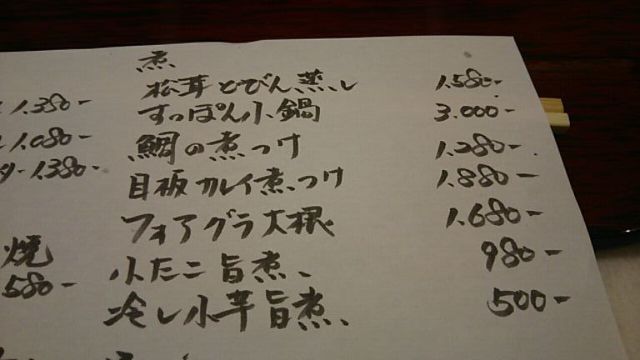 煮
松茸どびん蒸し 1.580-
すっぽん小鍋 3.000-
鯛の煮つけ 1.280-
目板カレイ煮つけ 1.880-
フォアグラ大根 1.680-
小たこ旨煮 980-
冷し小芋旨煮 500-
1.380-
1.080-
ター1.380-
焼
580-